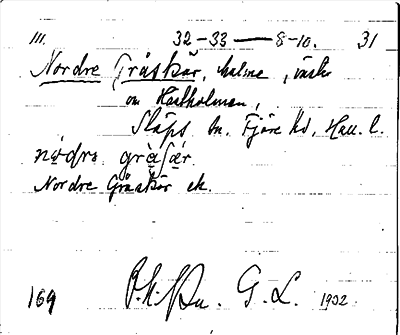 III. 32-33——8-10. 31
Nordre Gråskär, holme, väster
om Hartholmen,
Släps sn. Fjäre hd, Hall. l.
Nordre Gråskär ek.
169 G. L. 1932